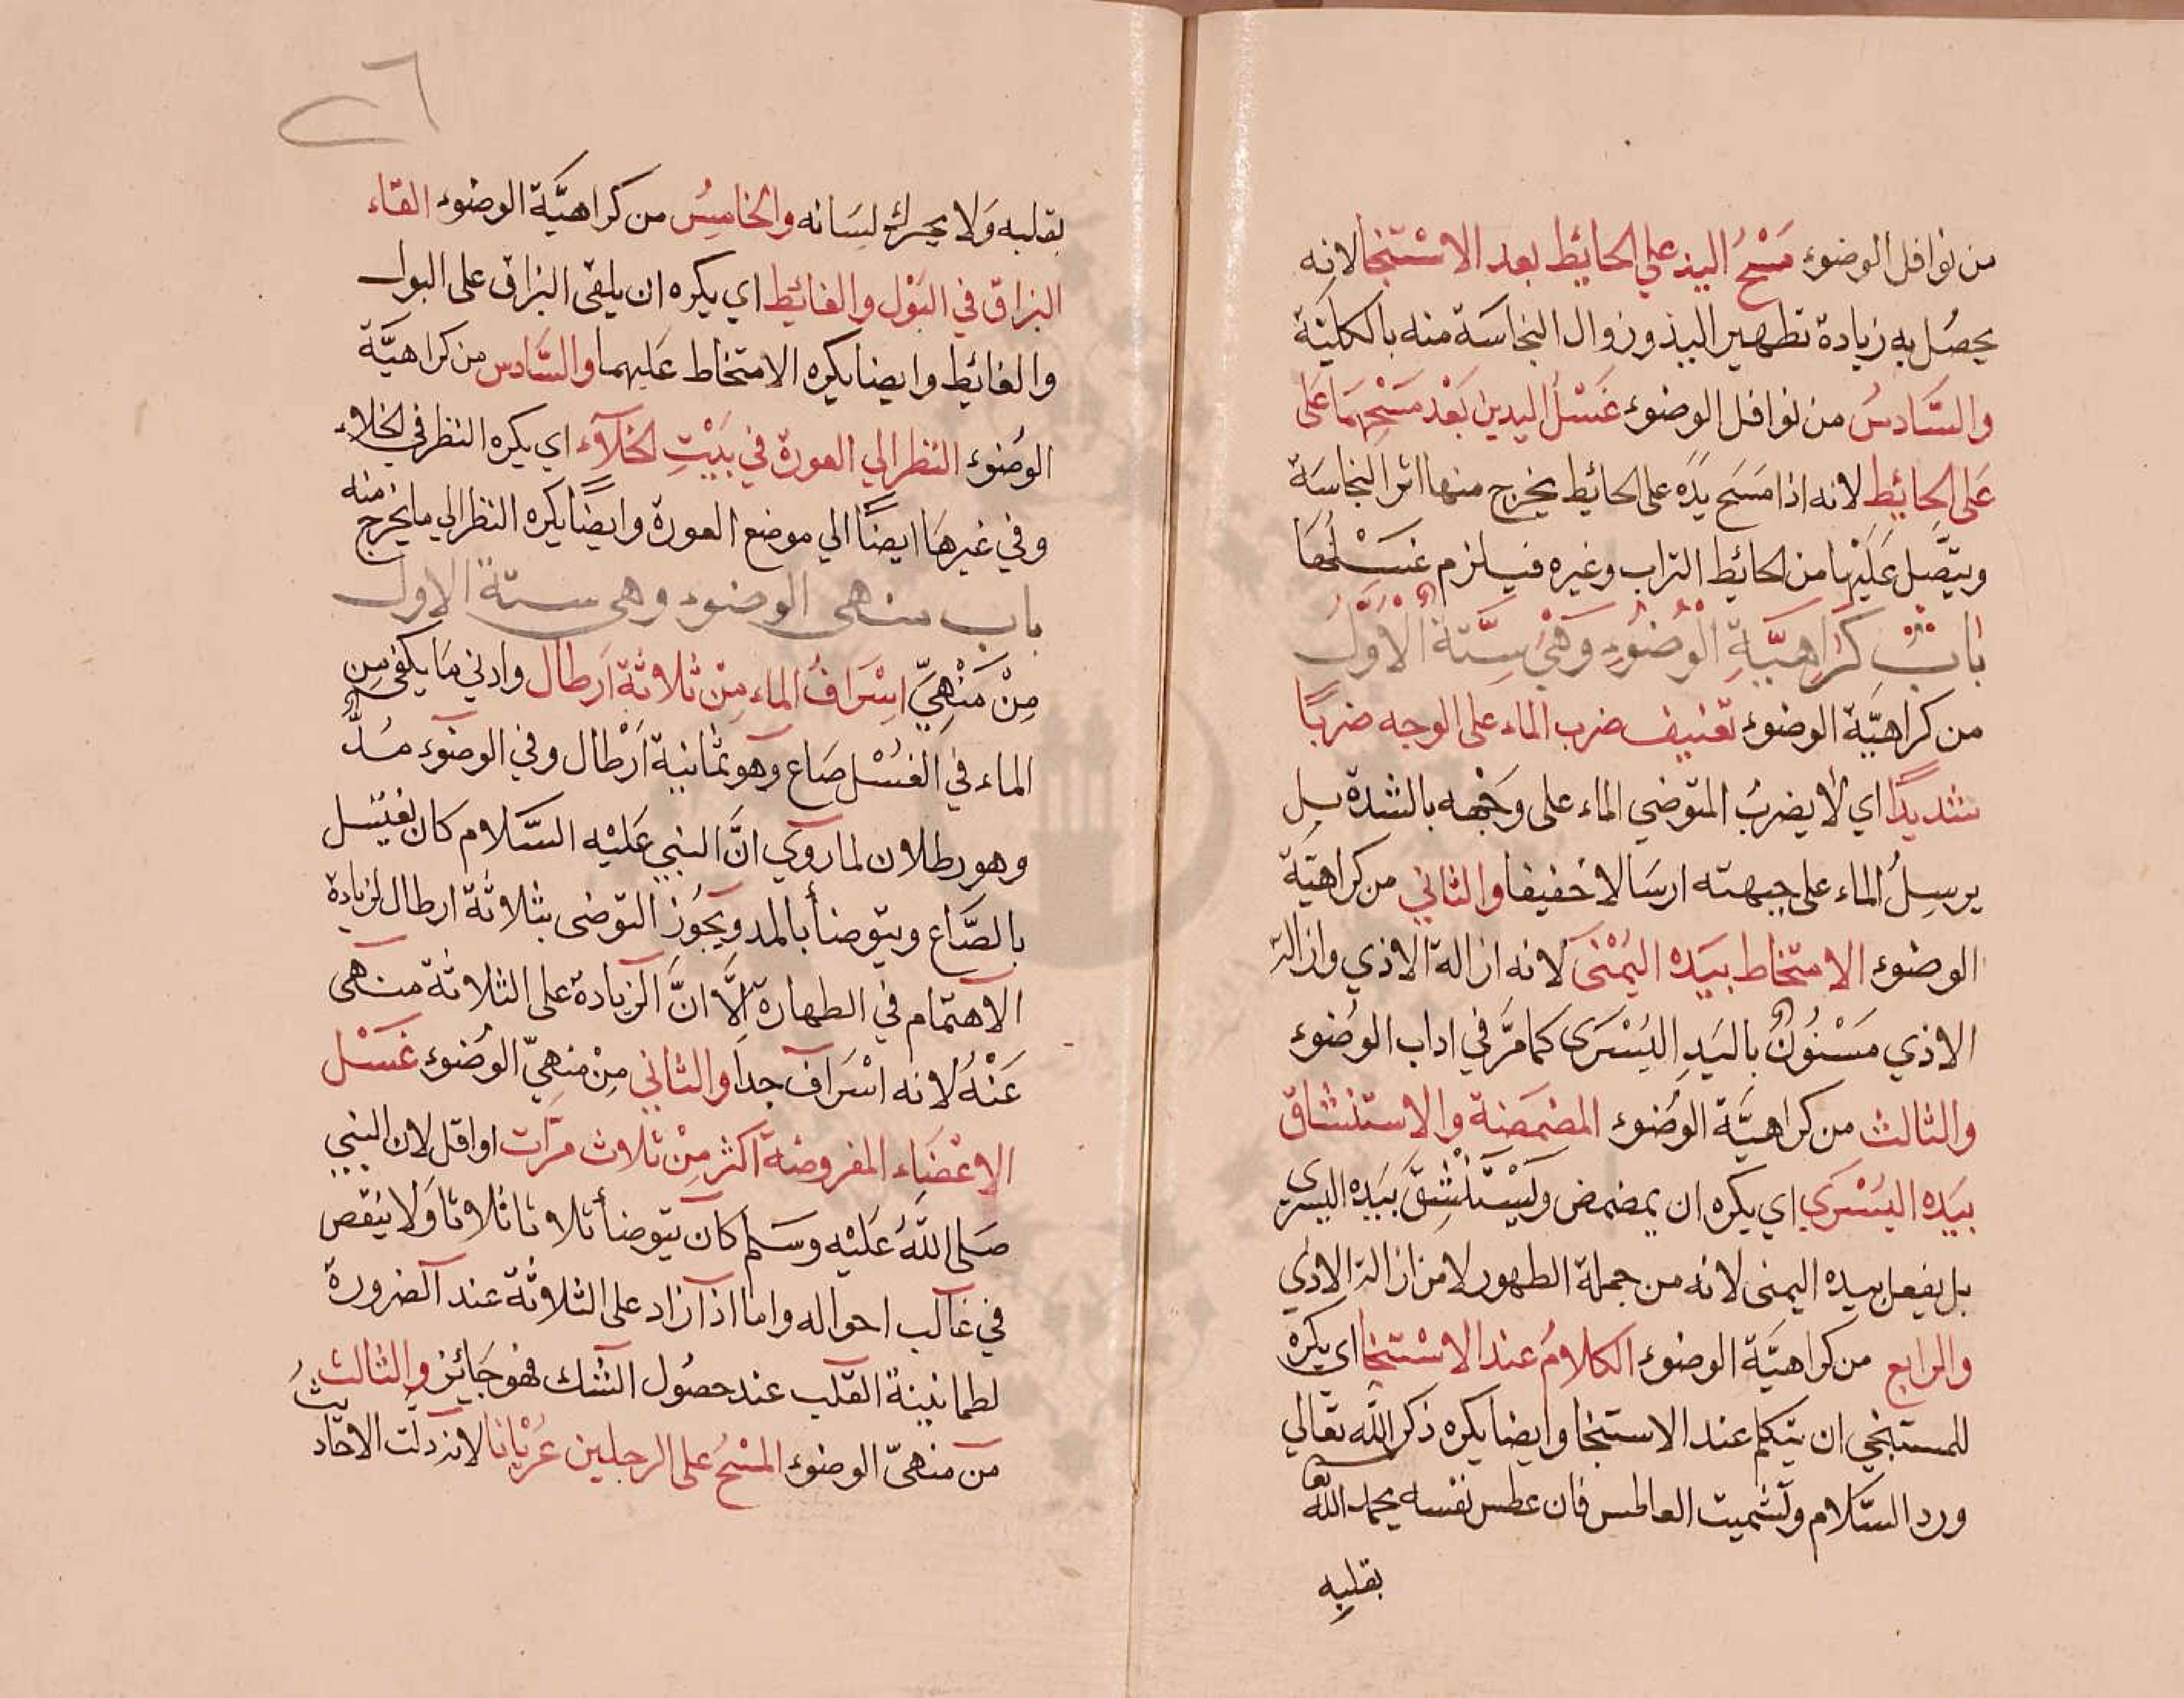 من نوافل الوضوء مَسْحُ اليد علي الحايُط بعد الاسْتنجا لانه
يحصُل به زيادة تطهير اليد وزوال النجاسَة منه بالكليّة
والسَّادسُ من نوافل الوضوء غَسْلُ اليدين بَعْدَ مَسْحِهمَا عَلَى
عَلى الحائِط لانه اذا مَسَح يدَه على الحائط يخرج منها اثر النجاسَة
ويتَّصل عَليْها من الحائط التراب وغيره فيلزم غَسْلُهَا
بَابٌ كَرَاهِيَّةِ الْوُضُوْءِ وَهْيَ سِتَّةٌ الْاَوَّلُ
من كراهيَّة الوضوء تعنيف ضرب الماء على الوجه ضربًا
شديدًا اي لا يضربُ المتوضي الماء على وجْهه بالشدة بل
يرسِلُ الماء على جبهته ارسَالا خفيفا والثاني من كراهيَّة
الوضوء الامتخاط بيَده اليُمْنىَ لانه ازالة الاذي وازالة
الاذي مَسْنُونٌ باليَدِ اليُسْرَى كما مرَّ في اداب الوضوء
والثالث من كراهيَّة الوُضوء المضمَضة والاستنشاق
بيَده اليُسْرَي اي يكره ان يمضمض وَيَسْتَنْشِقَ بيَده اليسرى
بل يفعل بيده اليمنى لانه من جملة الطهور لا من ازالة الاذي
والرابع من كراهيَّة الوضوء الكلامُ عند الاسْتنجا اي يكره
للمستنجي ان يتكلم عند الاستنجا وايضا يكره ذكر الله تعالي
ورد السَّلام وتشميت العاطس فان عطس نفسه يحمد الله تعا
بقلبِهِ
٢٦
بقلبه وَلا يحرك لسَانه والخامِسُ من كراهيَّة الوضوء القاء
البزاق في البَوْل والغائط اي يكره ان يلقى البزاق على البول
والغائِط وايضا يكره الامتخاط عَليهما والسَّادس من كراهيَّة
الوُضوء النظر الي العورة في بَيْتِ الخلآء اي يكره النظر في الخلاء
وفي غيرهَا ايضًا الي موضع العورة وايضًا يكره النظر الي ما يخرج منه
باب منهى الوضوء وهى ستة الاول
مِنْ مَنْهِيِّ اسْرَافُ الماء مِنْ ثلاثةِ اَرطال وادني مَا يكفى من
الماء في الغسْل صَاع وهو ثمانية اَرْطال وفي الوضوء مُدٌّ
وهو رطلان لما روي انَّ النبي عَليْه السَّلام كان يغتسل
بالصَّاع ويتوضأ بالمد ويجُوز التوضى بثلاثة ارطال لزيادة
الاهتمام في الطهارة الَّا انَّ الزيادة على الثلاثة منهى
عَنْهُ لانه اسْرَاف جدا والثاني مِنْ منهيّ الوُضوء غَسْل
الاعْضَاء المفروضة اكثر مِنْ ثلاث مرَّات او اقل لان النبي
صَلى اللَّهُ عَليْه وسَلم كان يتوضأ ثلاثا ثلاثا وَلا ينقص
في غالب احواله واما اذا زاد على الثلاثة عند الضرورة
لطمانينة القلب عند حصُول الشك فهو جَائز والثالث
من منهىّ الوضوء المسْحُ على الرجلين عُرْيانا لانه دلت الاحاديثُ